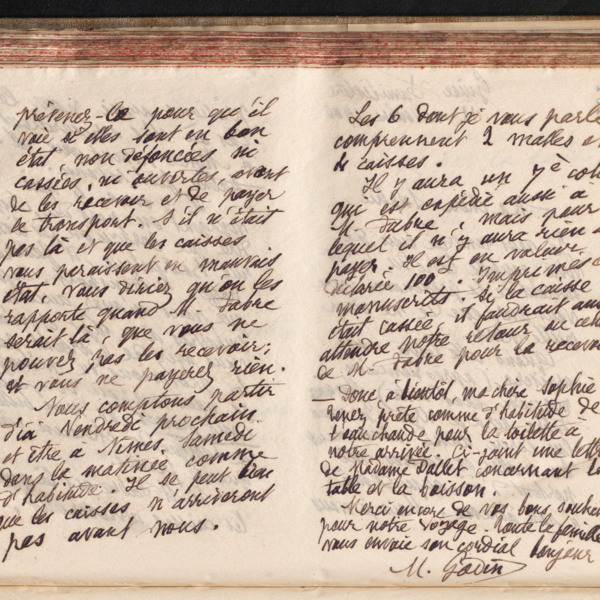 prévenez-le pour qu'il
voie si elles sont en bon
état, non défoncées ni
cassées, ni ouvertes, avant
de les recevoir et de payer
le transport. S'il n'était
pas là et que les caisses
vous paraissent en mauvais
état, vous diriez qu'on les
rapporte quand M. Fabre
serait là, que vous ne
pouvez pas les recevoir;
et vous ne payerez rien.
Nous comptons partir
d'ici Vendredi prochain
et être à Nîmes Samedi
dans la matinée comme
d'habitude. Il se peut bien
que les caisses n'arriveront
pas avant nous.
Les 6 dont je vous parle
comprennent 2 malles et
4 caisses.
Il y aura un 7è colis
qui est expédié aussi à
M. Fabre, mais pour
lequel il n'y aura rien à
payer. Il est en valeur
déclarée 100. Imprimés et
manuscrits. Si la caisse
était cassée, il faudrait
attendre notre retour ou celui
de M. Fabre pour la recevoir
— Donc, à bientôt, ma chère Sophie
tenez prête comme d'habitude de
l'eau chaude pour la toilette à
notre arrivée. Ci-joint une lettre
de Madame Dallet concernant la
table et la boisson.
Merci encore de vos bons souhaits
pour notre voyage. Toute la famille
vous envoie son cordial bonjour
M. Godin